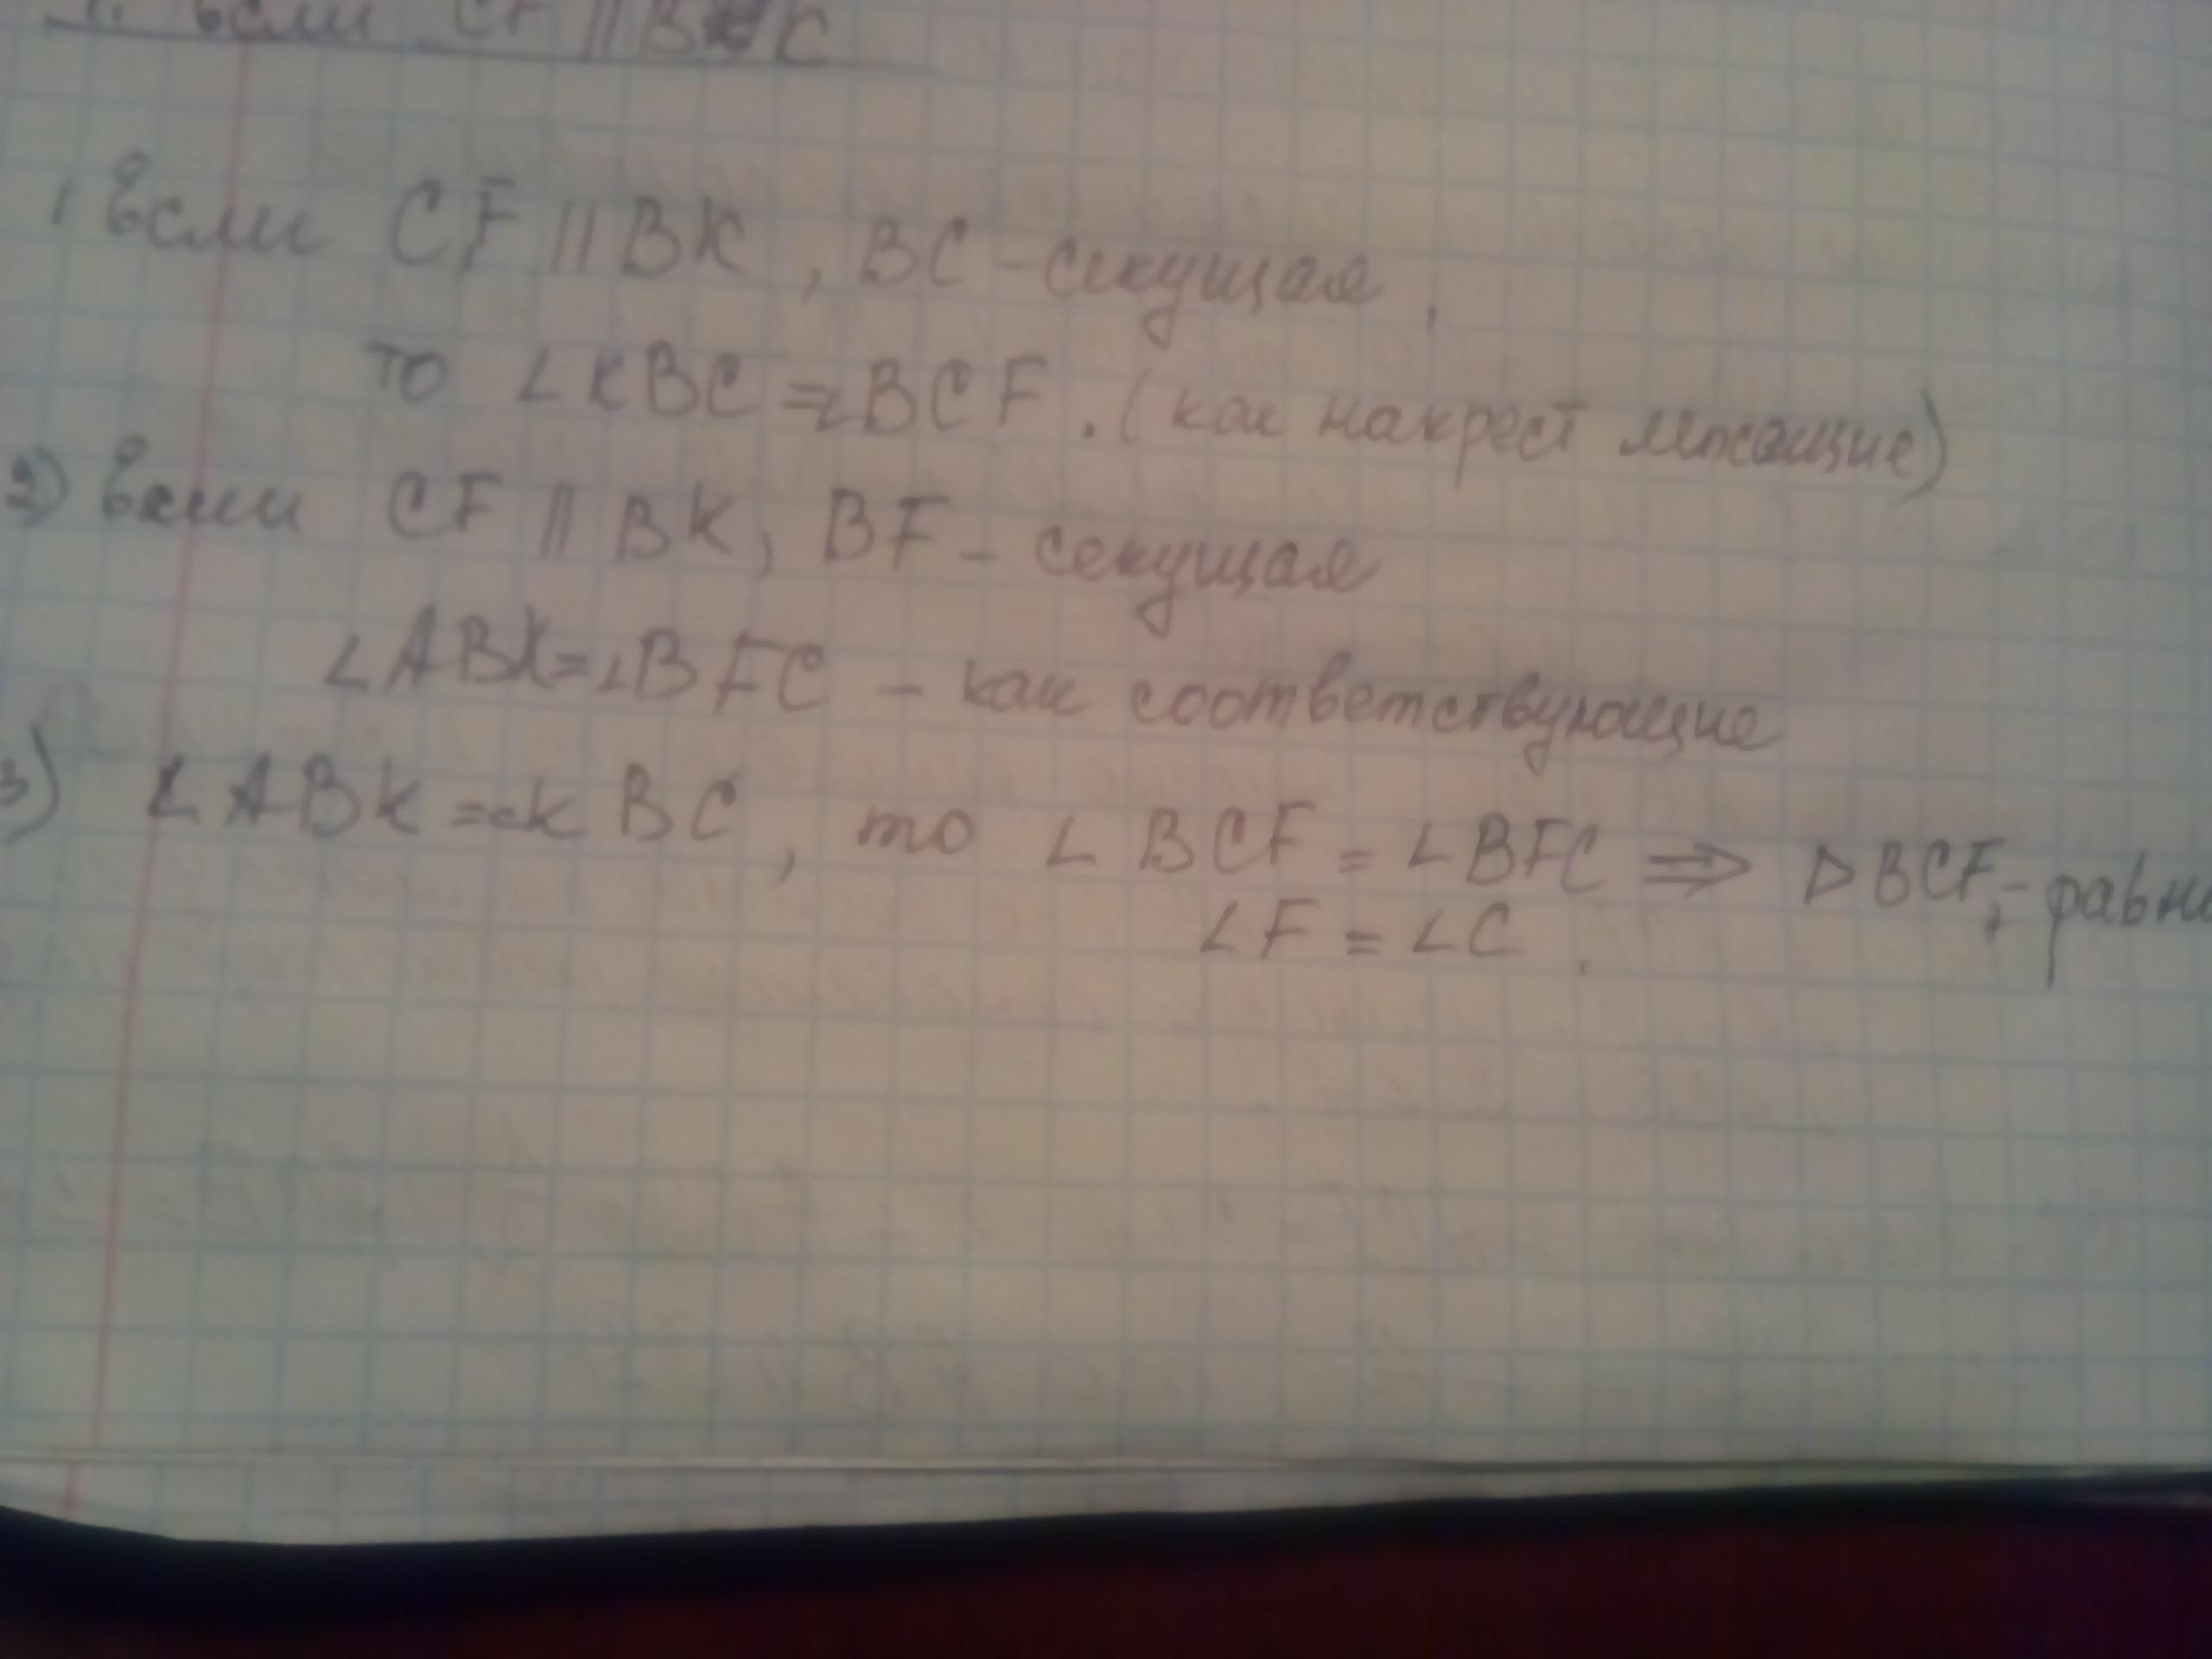 1. Если CF || BK
1 Если CF || BK, BC - секущая,
то ∠KBC = ∠BCF. (как накрест лежащие)
2) Если CF || BK, BF - секущая
∠ABK = ∠BFC - как соответствующие
3) ∠ABK = ∠KBC, то ∠BCF = ∠BFC ⇒ △BCF, - равн
∠F = ∠C.